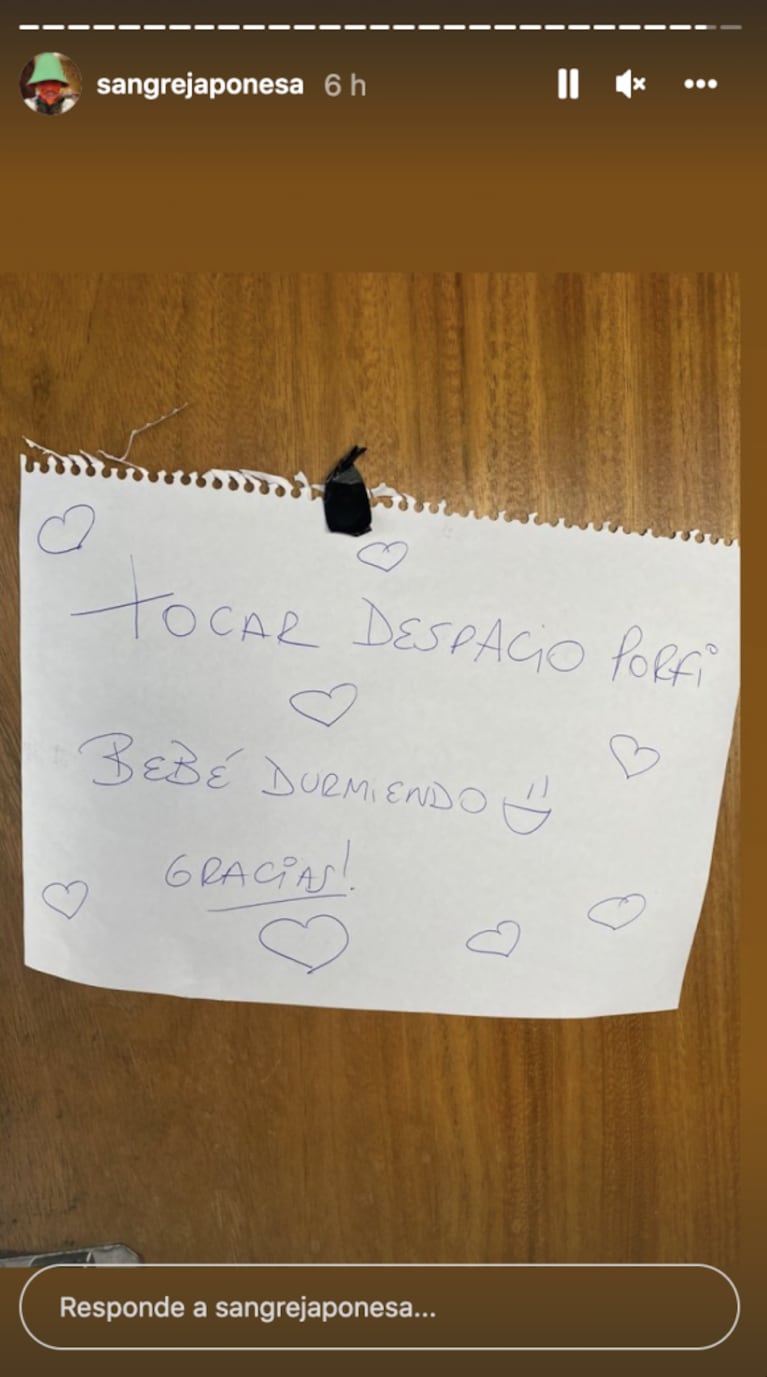 sangrejaponesa 6 h
TOCAR DESPACIO PORFI
BEBÉ DURMIENDO
GRACIAS!
Responde a sangrejaponesa...